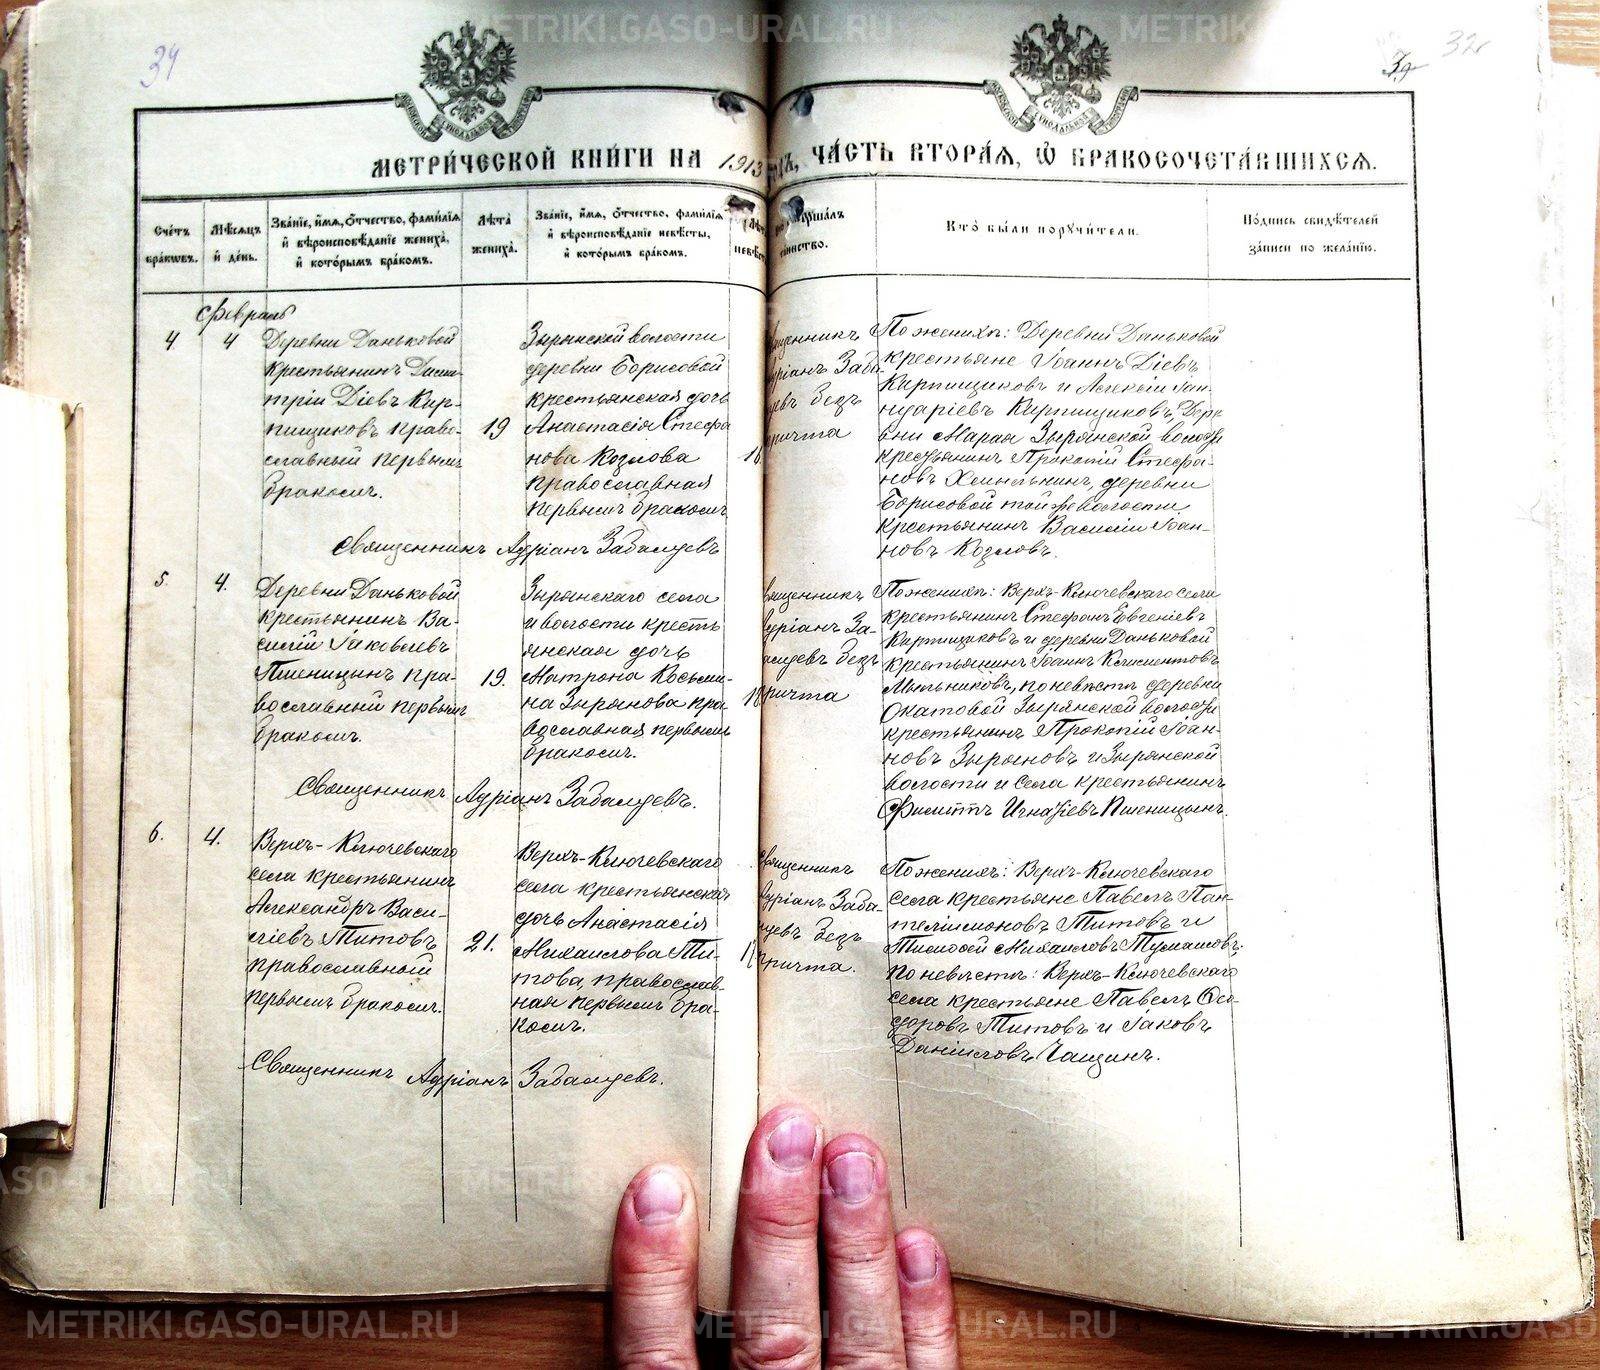 METRIKI.GASO-URAL.RU
34
32
МЕТРИ́ЧЕСКОЙ КНИ́ГИ НА 1913 ГОДЪ, ЧА́СТЬ ВТОРА́Я, Ѿ БРАКОСОЧЕТА́ВШИХСѦ.
Сче́тъ бра́кѡвъ.
Мѣ́сѧцъ и҆ де́нь.
Зва́нїе, и҆́мѧ, ѻ҆́тчество, фами́лїѧ и҆ вѣроисповѣ́данїе жениха̀, и҆ кото́рымъ бра́комъ.
Лѣ́та жениха̀.
Зва́нїе, и҆́мѧ, ѻ҆́тчество, фами́лїѧ и҆ вѣроисповѣ́данїе невѣ́сты, и҆ кото́рымъ бра́комъ.
Кто̀ бы́ли порꙋчи́тели.
По́дпись свидѣ́телей за́писи по жела́нїю.
Февраль
4
4
Деревни Даньковой
крестьянинъ Дими-
трій Діевъ Кир-
пищиковъ право-
славный первымъ
бракомъ.
19
Зырянской волости
деревни Борисовой
крестьянская дочь
Анастасія Стефа
нова Козлова
православная
первымъ бракомъ
Священникъ
Адріанъ Заба
цевъ безъ
причта
По женихѣ: Деревни Даньковой
крестьяне Іоаннъ Діевъ
Кирпищиковъ и Алексій Іан-
нуаріевъ Кирпищиковъ, Дере
вни Марая Зырянской волости
крестьянинъ Прокопій Стефа-
новъ Хмѣльнинъ, деревни
Борисовой той же волости
крестьянинъ Василій Іоан-
новъ Козловъ.
Священникъ Адріанъ Забалуевъ
5.
4.
Деревни Даньковой
крестьянинъ Ва-
силій Іаковлевъ
Пшеницынъ пра-
вославный первымъ
бракомъ.
19.
Зырянскаго села
и волости кресть
янская дочь
Матрона Косьми-
на Зырянова пра
вославная первымъ
бракомъ.
18
Священникъ
Адріанъ За-
балуевъ безъ
причта
По женихѣ: Верхъ-Ключевскаго села
крестьянинъ Стефанъ Евгеніевъ
Кирпищиковъ и деревни Даньковой
крестьянинъ Іоаннъ Климентовъ
Мыльниковъ, по невѣстѣ деревни
Окатовой Зырянской волости
крестьянинъ Прокопій Іоан-
новъ Зыряновъ и Зырянской
волости и села крестьянинъ
Филиппъ Игнатіевъ Пшеницынъ.
Священникъ Адріанъ Забалуевъ.
6.
4.
Верхъ-Ключевскаго
села крестьянинъ
Александръ Васи-
ліевъ Титовъ
православный
первымъ бракомъ.
21.
Верхъ-Ключевскаго
села крестьянская
дочь Анастасія
Михаилова Ти-
това, православ-
ная первымъ бра-
комъ.
Священникъ
Адріанъ Заба-
луевъ безъ
причта.
По женихѣ: Верхъ-Ключевскаго
села крестьяне Павелъ Пан-
телимоновъ Титовъ и
Тимофей Михаиловъ Тумашовъ;
По невѣстѣ: Верхъ-Ключевскаго
села крестьяне Павелъ Ѳео-
доровъ Титовъ и Іаковъ
Даніиловъ Чащинъ.
Священникъ Адріанъ Забалуевъ.
METRIKI.GASO-URAL.RU
METRIKI.GASO-URAL.RU